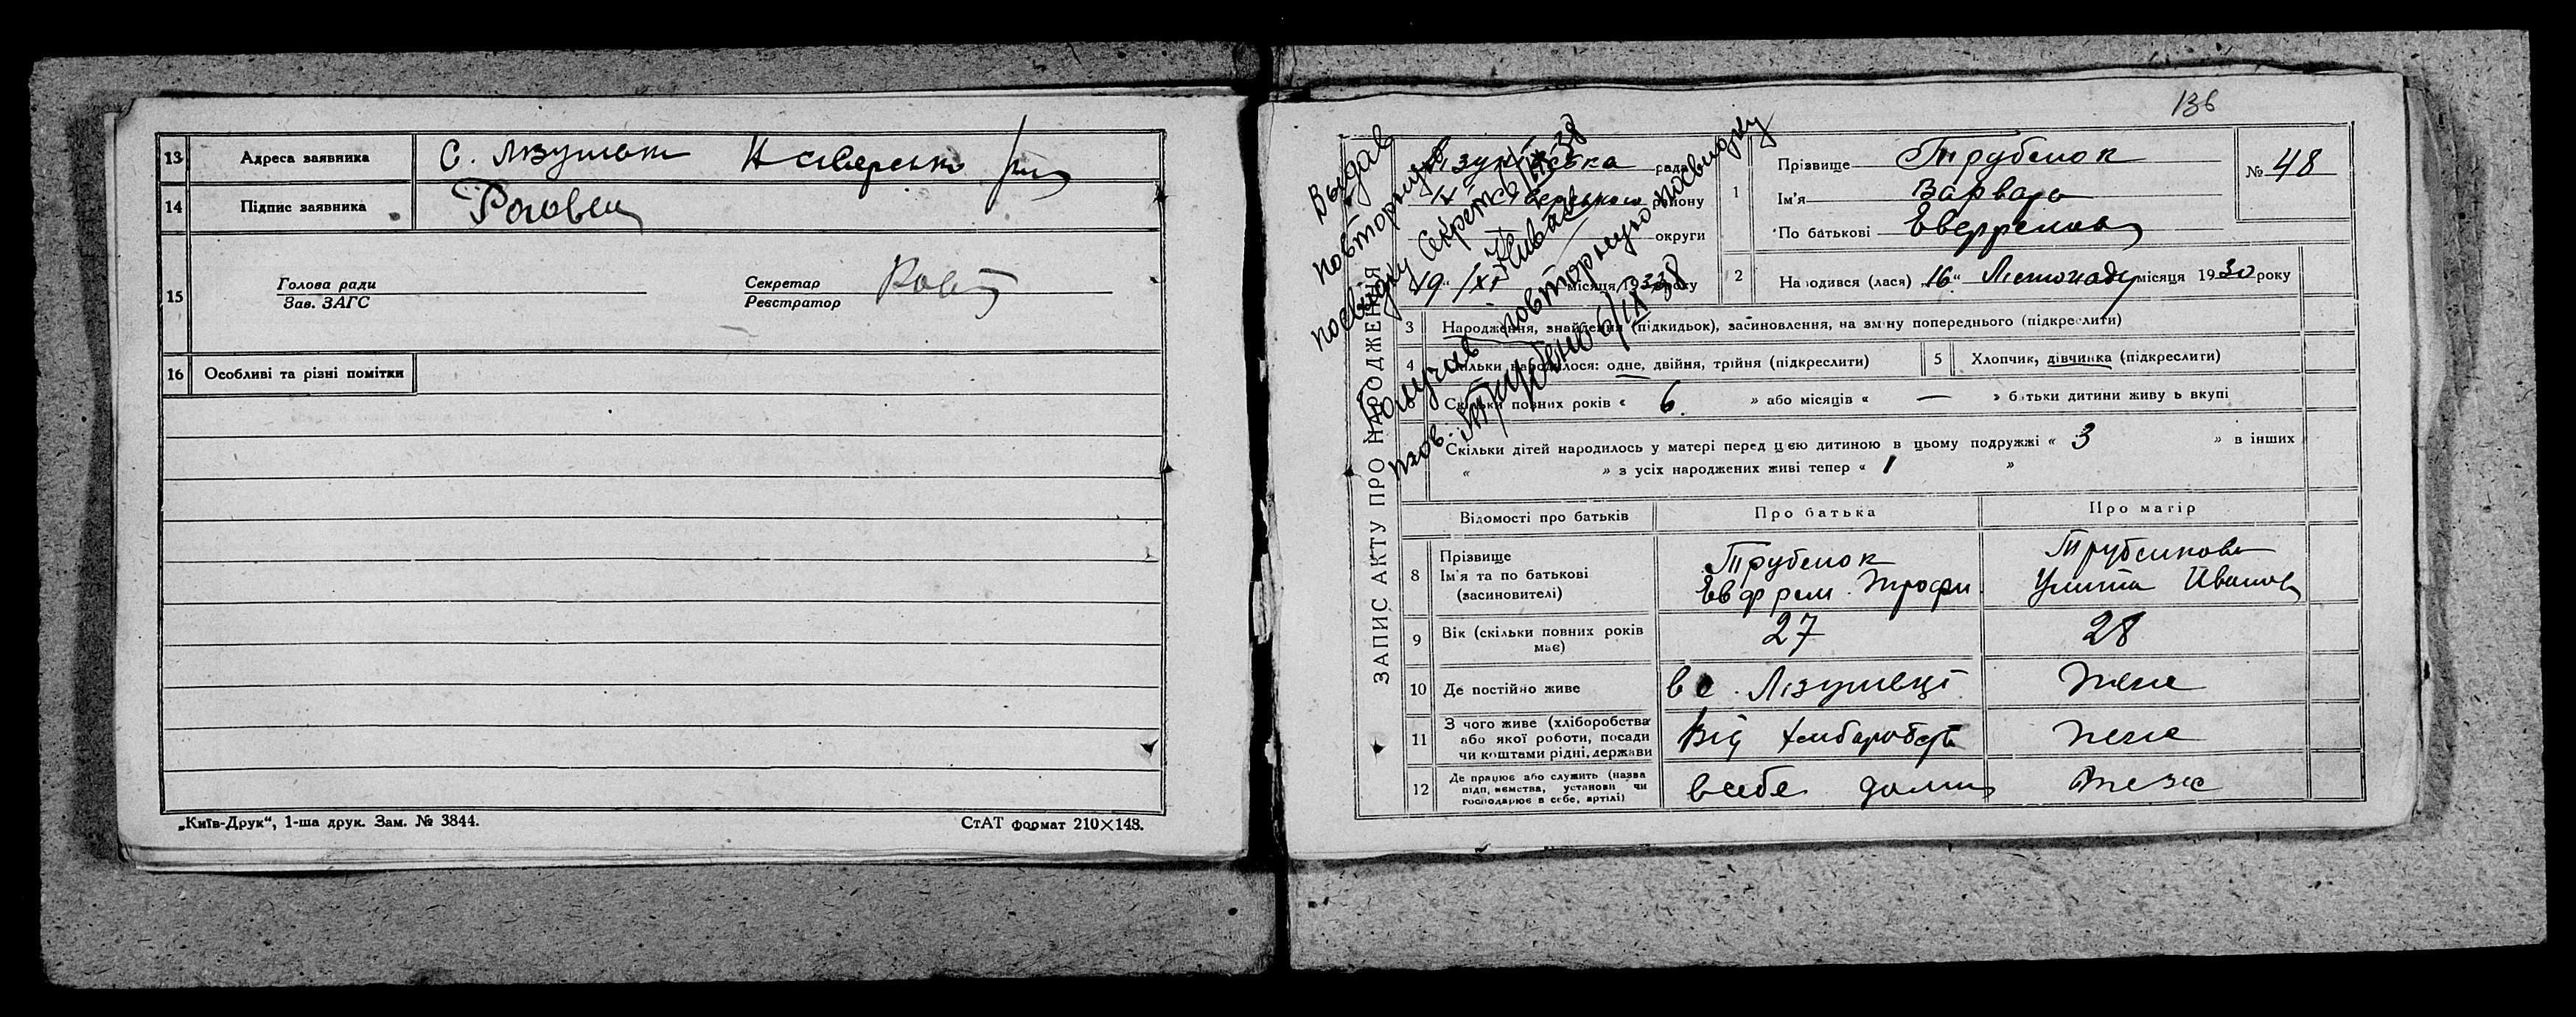 13 Адреса заявника С. Лізунівки Н Сіверського р-ну
14 Підпис заявника
15 Голова ради
Зав. ЗАГС
Секретар
Реєстратор
16 Особливі та різні помітки
„Київ-Друк“, 1-ша друк. Зам. № 3844.
СтАТ формат 210×148.
136
ЗАПИС АКТУ ПРО НАРОДЖЕННЯ
Видав
повторную
посвідку Секретар
6/IX 38
Получав повторную посвидку
тов. Трубено 6/IX 38
рада
району
округи
19 /XI місяця 1930 року
1 Прізвище Трубенок
Ім'я Варвара
По батькові Евфремов
№ 48
2 Народився (лася) „16“ Лістопаду місяця 1930 року
3 Народження, знайдення (підкидьок), засиновлення, на зміну попереднього (підкреслити)
4 Скільки народилося: одне, двійня, трійня (підкреслити)
5 Хлопчик, дівчинка (підкреслити)
6 Скільки повних років « 6 » або місяців « — » батьки дитини живуть вкупі
Скільки дітей народилось у матері перед цією дитиною в цьому подружжі « 3 » в інших
« » з усіх народжених живі тепер « 1 »
Відомості про батьків Про батька Про матір
8 Прізвище
Ім'я та по батькові
(засиновителі)
Трубенок
Евфрем. Трофи
Трубенкова
Улита Иванов
9 Вік (скільки повних років
має)
27 28
10 Де постійно живе в с. Лізунівці теж
11 З чого живе (хліборобства
або якої роботи, посади
чи коштами рідні, держави
Від хліборобств теж
12 Де працює або служить (назва
підприємства, установи чи
господарює в себе, артілі)
в себе дома теж